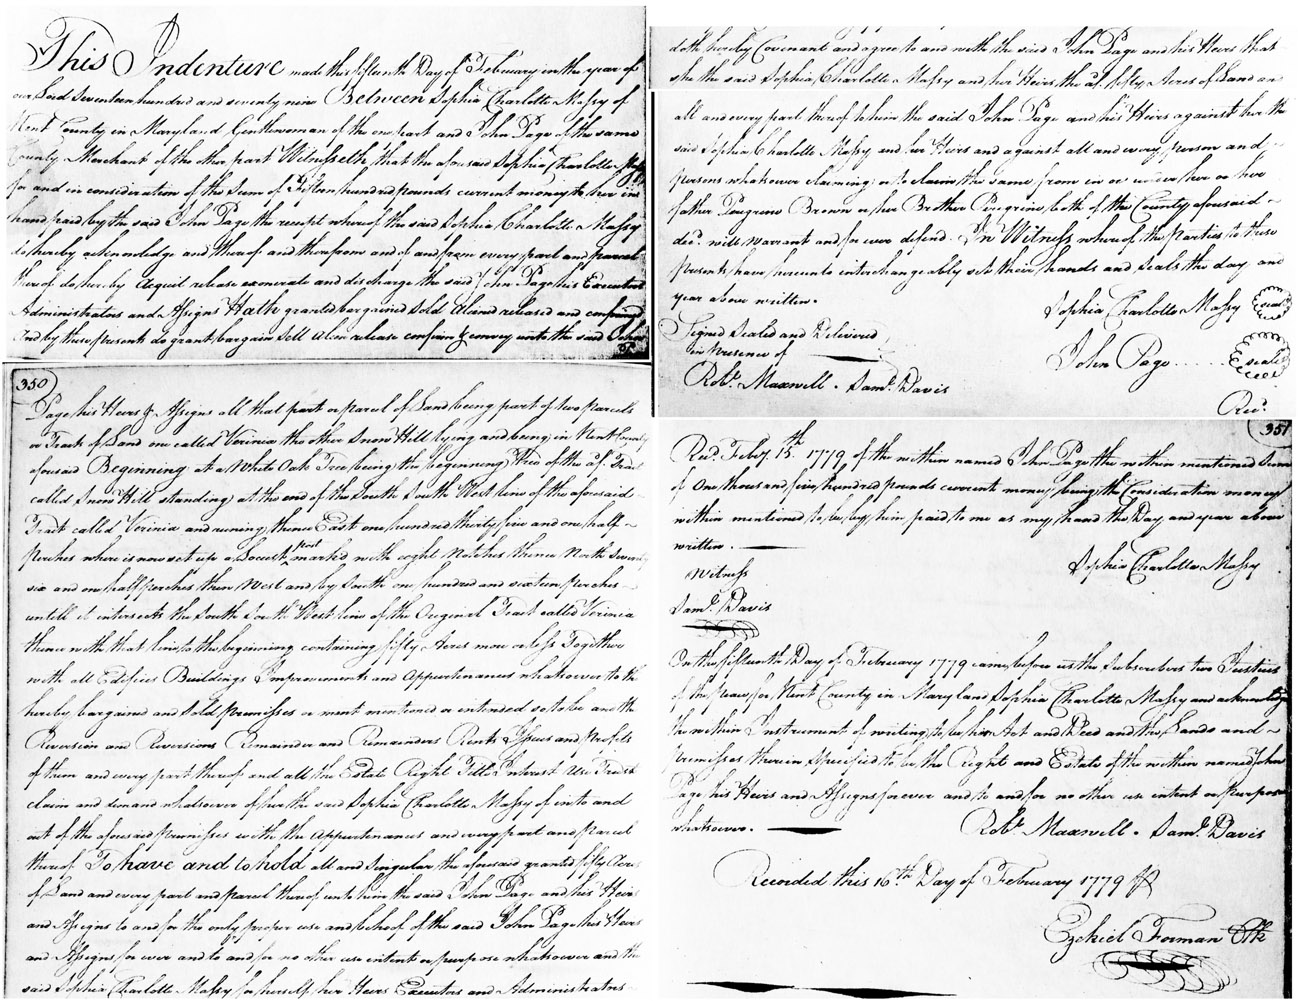 This Indenture made this fifteenth Day of February in the year of
our Lord Seventeen hundred and seventy nine Between Sophia Charlotte Massy of
Kent County in Maryland Gentlewoman of the one part and John Page of the same
County Merchant of the other part Witnesseth that the aforesaid Sophia Charlotte
for and in consideration of the Sum of Fifteen hundred pounds current money to her in
hand paid by the said John Page the receipt whereof the said Sophia Charlotte Massy
do hereby acknowledge and thereof and therefrom and of and from every part and parcel
thereof do hereby acquit release exonerate and discharge the said John Page his Executors
Administrators and Assigns Hath granted bargained sold aliened released and confirmed
and by these presents do grant bargain sell alien release confirm & convey unto the said John
350
Page his Heirs & Assigns all that part or parcel of Land being part of two parcels
or Tracts of Land one called Verinia the other Snow Hill lying and being in Kent County
aforesaid Beginning at a White Oak Tree being the beginning Tree of the af. Tract
called Snow Hill standing at the end of the South South West line of the aforesaid
Tract called Verinia and runing thence East one hundred thirty five and one half
perches where is now set up a Locust post marked with eight Notches thence North Seventy
six and one half perches then West and by South one hundred and sixteen perches
untill it intersects the South South West line of the Original Tract called Verinia
thence with that line to the beginning containing fifty Acres more or less Together
with all Edifices Buildings Improvements and appurtenances whatsoever to the
hereby bargained and sold premisses or ment mentioned or intended so to be and the
Reversion and Reversions Remainder and Remainders Rents Issues and profits
of them and every part thereof and all the Estate Right Title Interest Use Trust
claim and demand whatsoever of her the said Sophia Charlotte Massy of in to and
out of the aforesaid premisses with the appurtenances and every part and parcel
thereof To have and to hold all and singular the aforesaid granted fifty Acres
of Land and every part and parcel thereof unto him the said John Page and his Heirs
and Assigns to and for the only proper use and behoof of the said John Page his Heirs
and Assigns for ever and to and for no other use intent or purpose whatsoever and the
said Sophia Charlotte Massy for herself her Heirs Executors and Administrators
doth hereby Covenant and agree to and with the said John Page and his Heirs that
she the said Sophia Charlotte Massy and her Heirs the af. fifty Acres of Land an
all and every part thereof to him the said John Page and his Heirs against her the
said Sophia Charlotte Massy and her Heirs and against all and every person and
persons whatsoever claiming or to claim the same from in or under her or her
father Peregrine Brown or her Brother Peregrine both of the County aforesaid
decd. will warrant and for ever defend. In Witness whereof the Parties to these
presents have hereunto interchangeably set their hands and seals the day and
year above written.
Sophia Charlotte Massy seal
Signed Sealed and Delivered
in Presence of
John Page seal
Robt. Maxwell. Saml. Davis
Recd.
351
Recd. Feby. 15th 1779 of the within named John Page the within mentioned Sum
of One thousand five hundred pounds current money being the Consideration money
within mentioned to be by him paid to me as my hand the Day and year above
written.
Sophia Charlotte Massy
Witness
Saml. Davis
On the fifteenth Day of February 1779 came before us the Subscribers two Justices
of the peace for Kent County in Maryland Sophia Charlotte Massy and acknowledg
the within Instrument of writing to be her Act and Deed and the Lands and
premisses therein specified to be the Right and Estate of the within named John
Page his Heirs and Assigns for ever and to and for no other use intent or purpose
whatsoever.
Robt. Maxwell. Saml. Davis
Recorded this 16th Day of February 1779
Ezekiel Forman Clk